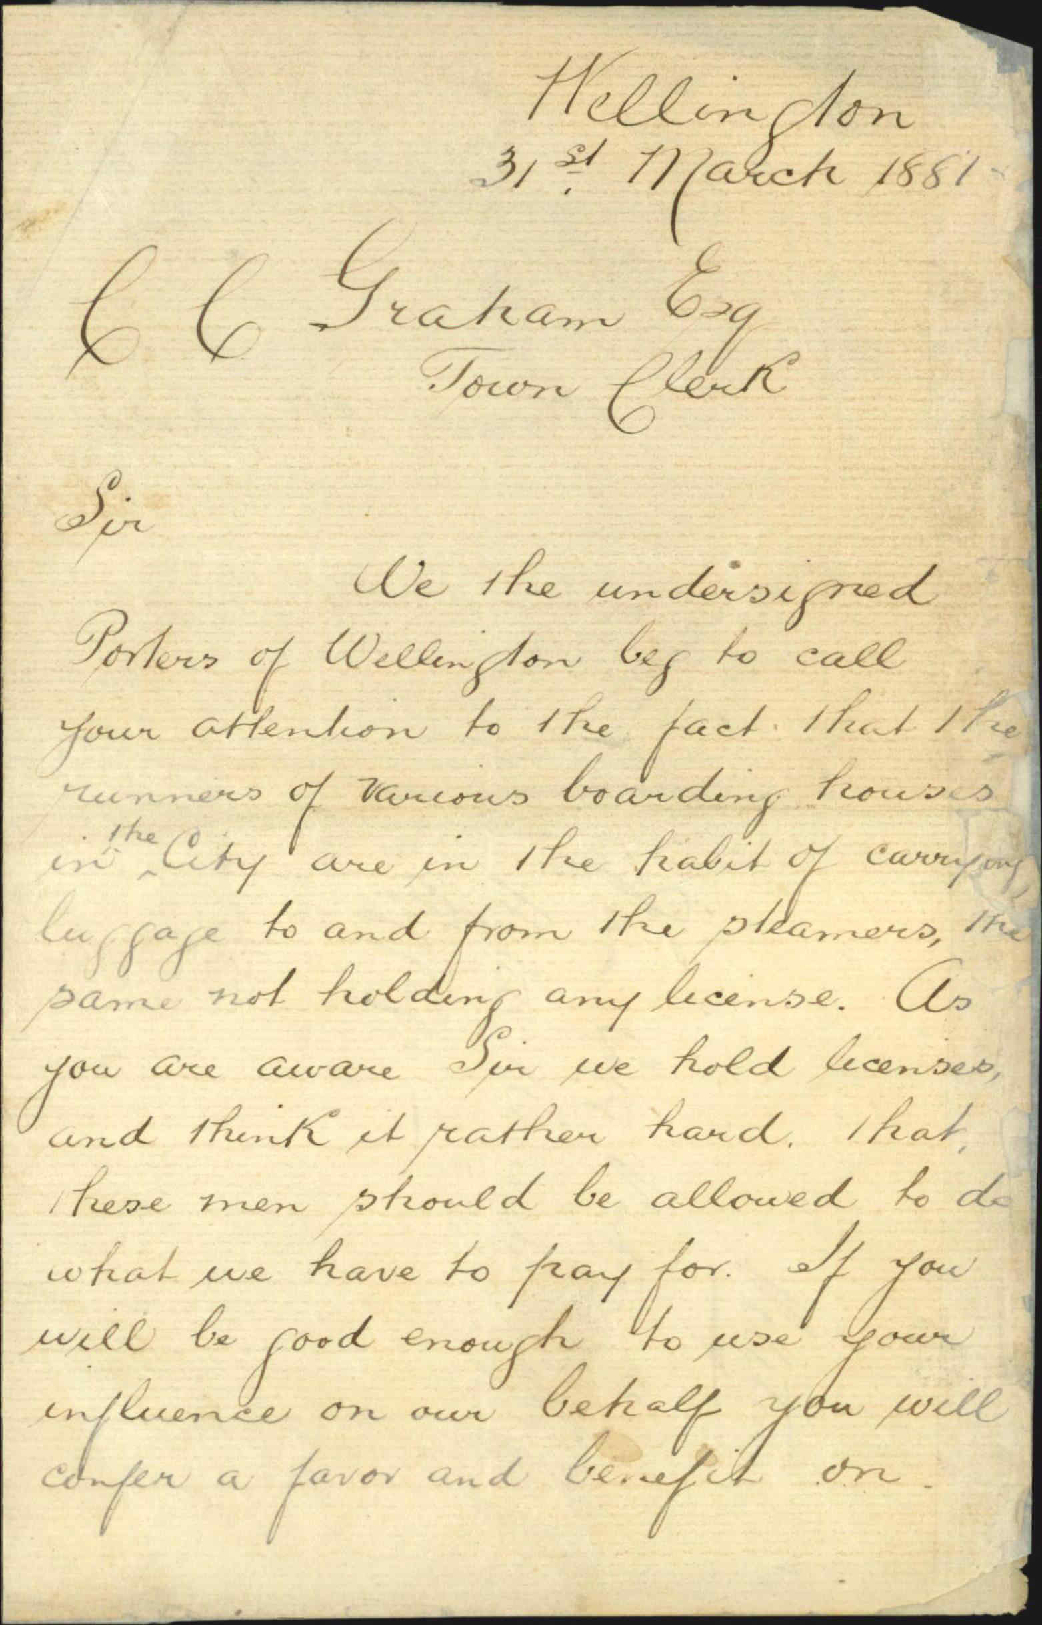 Wellington
31st. March 1881
C C Graham Esq
Town Clerk
Sir
We the undersigned
Porters of Wellington beg to call
your attention to the fact that the
runners of various boarding houses
in the City are in the habit of carrying
luggage to and from the steamers, the
same not holding any license. As
you are aware Sir we hold licenses,
and think it rather hard. that,
these men should be allowed to do
what we have to pay for. If you
will be good enough to use your
influence on our behalf you will
confer a favor and benefit on